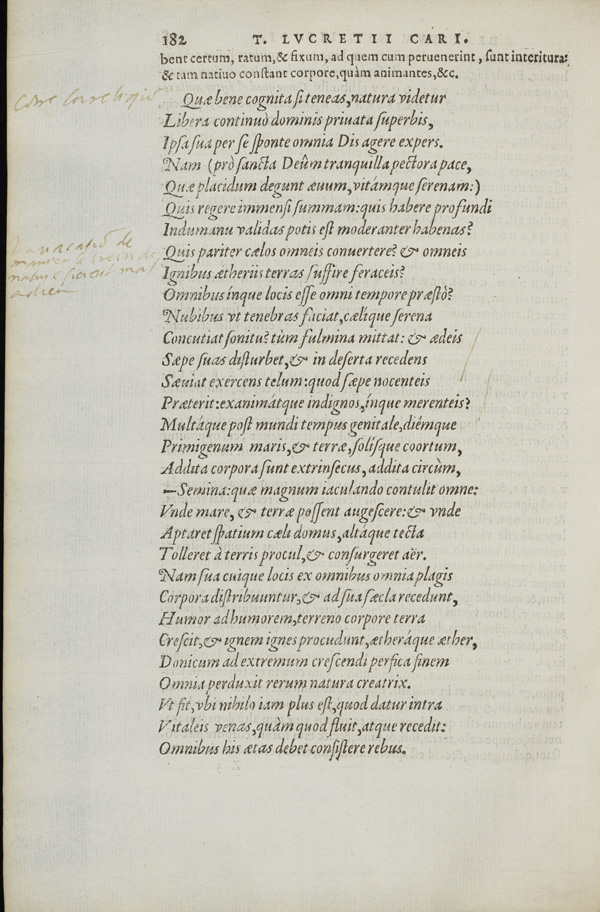 182 T. LVCRETII CARI.
bent certum, ratum, & fixum, ad quem cum peruenerint, sunt interitura:
& tam natiuo constant corpore, quàm animantes, &c.
Quæ bene cognita si teneas, natura videtur
Libera continuò dominis priuata superbis,
Ipsa sua per se sponte omnia Dis agere expers.
Nam (prô sancta Deûm tranquilla pectora pace,
Quæ placidum degunt æuum, vitámque serenam:)
Quis regere immensi summam: quis habere profundi
Indumanu validas potis est moderanter habenas?
Quis pariter cælos omneis conuertere? & omneis
Ignibus ætheriis terras suffire feraceis?
Omnibus ínque locis esse omni tempore præstò?
Nubibus vt tenebras faciat, cælíque serena
Concutiat sonitu? tùm fulmina mittat: & ædeis
Sæpe suas disturbet, & in deserta recedens
Sæuiat exercens telum: quod sæpe nocenteis
Præterit: exanimátque indignos, ínque merenteis?
Multáque post mundi tempus genitale, diémque
Primigenum maris, & terræ, solísque coortum,
Addita corpora sunt extrinsecus, addita circùm,
—Semina: quæ magnum iaculando contulit omne:
Vnde mare, & terræ possent augescere: & vnde
Aptaret spatium cæli domus, altáque tecta
Tolleret à terris procul, & consurgeret aër.
Nam sua cuique locis ex omnibus omnia plagis
Corpora distribuuntur, & ad sua sæcla recedunt,
Humor ad humorem, terreno corpore terra
Crescit, & ignem ignes procudunt, ætheráque æther,
Donicum ad extremum crescendi perfica finem
Omnia perduxit rerum natura creatrix.
Vt fit, vbi nihilo iam plus est, quod datur intra
Vitaleis venas, quàm quod fluit, atque recedit:
Omnibus his ætas debet consistere rebus.